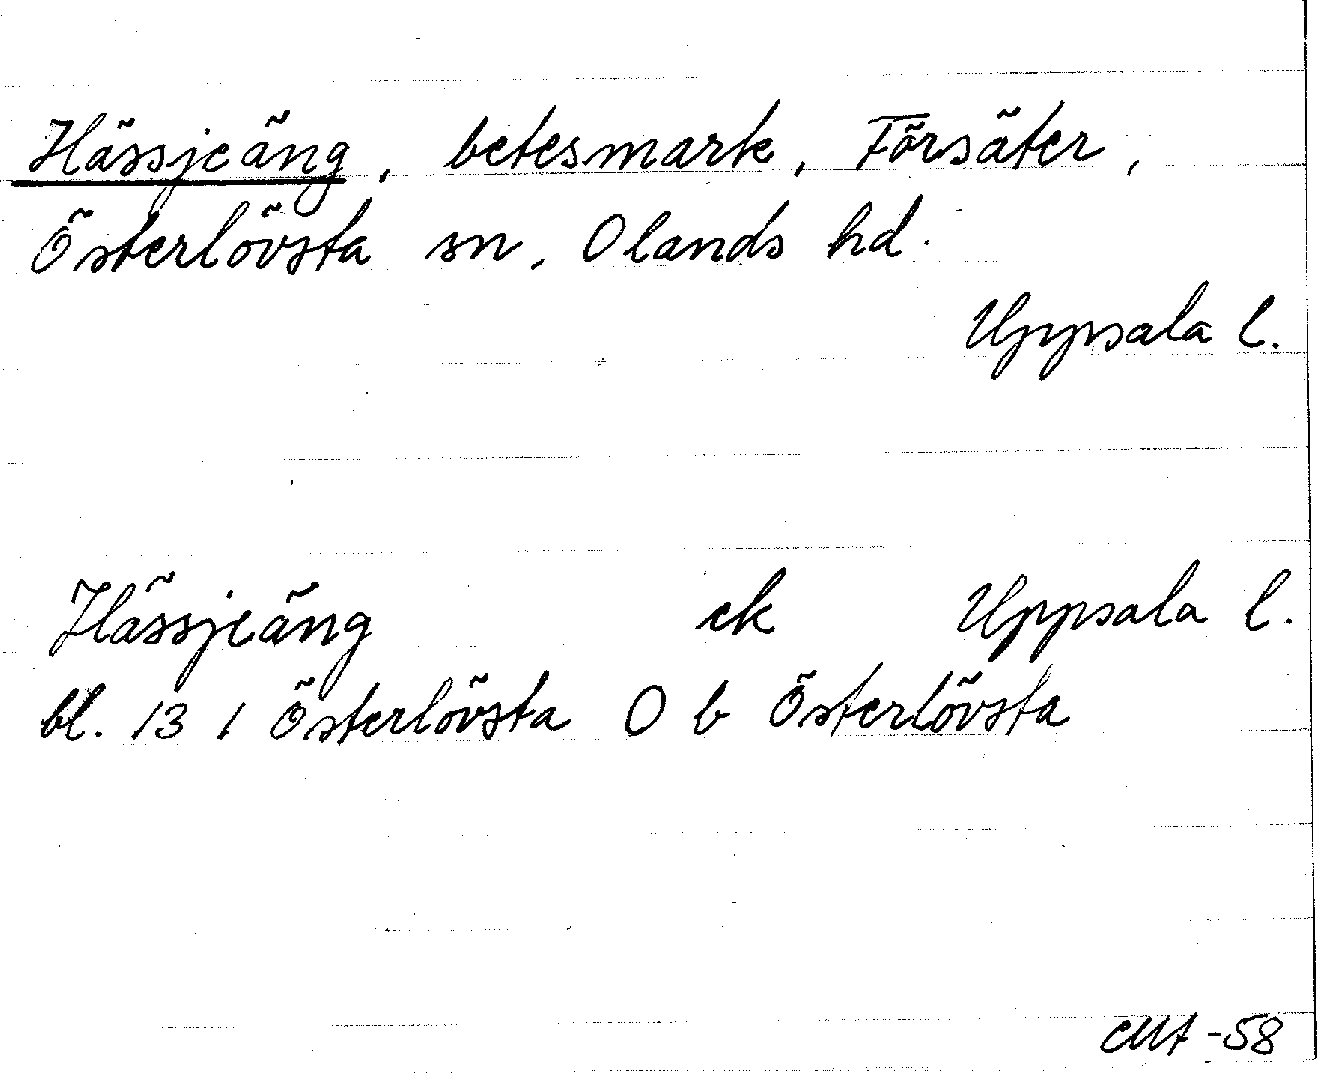 Hässjeäng, betesmark, Försäter,
Österlövsta sn, Olands hd.
Uppsala l.
Hässjeäng ek Uppsala l.
bl. 13 1 Österlövsta O b Österlövsta
-58